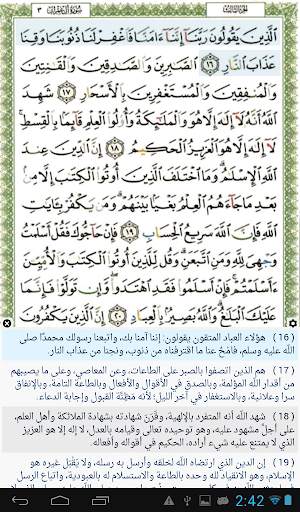 الجزء الثالث سورة آل عمران ٣
ٱلَّذِينَ يَقُولُونَ رَبَّنَآ إِنَّنَآ ءَامَنَّا فَٱغۡفِرۡ لَنَا ذُنُوبَنَا وَقِنَا
عَذَابَ ٱلنَّارِ ١٦ ٱلصَّٰبِرِينَ وَٱلصَّٰدِقِينَ وَٱلۡقَٰنِتِينَ
وَٱلۡمُنفِقِينَ وَٱلۡمُسۡتَغۡفِرِينَ بِٱلۡأَسۡحَارِ ١٧ شَهِدَ
ٱللَّهُ أَنَّهُۥ لَآ إِلَٰهَ إِلَّا هُوَ وَٱلۡمَلَٰٓئِكَةُ وَأُوْلُواْ ٱلۡعِلۡمِ قَآئِمَۢا بِٱلۡقِسۡطِۚ
لَآ إِلَٰهَ إِلَّا هُوَ ٱلۡعَزِيزُ ٱلۡحَكِيمُ ١٨ إِنَّ ٱلدِّينَ عِندَ
ٱللَّهِ ٱلۡإِسۡلَٰمُۗ وَمَا ٱخۡتَلَفَ ٱلَّذِينَ أُوتُواْ ٱلۡكِتَٰبَ إِلَّا مِنۢ
بَعۡدِ مَا جَآءَهُمُ ٱلۡعِلۡمُ بَغۡيَۢا بَيۡنَهُمۡۗ وَمَن يَكۡفُرۡ بِـَٔايَٰتِ
ٱللَّهِ فَإِنَّ ٱللَّهَ سَرِيعُ ٱلۡحِسَابِ ١٩ فَإِنۡ حَآجُّوكَ فَقُلۡ أَسۡلَمۡتُ
وَجۡهِيَ لِلَّهِ وَمَنِ ٱتَّبَعَنِۗ وَقُل لِّلَّذِينَ أُوتُواْ ٱلۡكِتَٰبَ وَٱلۡأُمِّيِّـۧنَ
ءَأَسۡلَمۡتُمۡۚ فَإِنۡ أَسۡلَمُواْ فَقَدِ ٱهۡتَدَواْۖ وَّإِن تَوَلَّوۡاْ فَإِنَّمَا
عَلَيۡكَ ٱلۡبَلَٰغُۗ وَٱللَّهُ بَصِيرُۢ بِٱلۡعِبَادِ ٢٠ إِنَّ ٱلَّذِينَ يَكۡفُرُونَ
( 16 ) هؤلاء العباد المتقون يقولون: إننا آمنا بك، واتبعنا رسولك محمدًا صلى
الله عليه وسلم، فامْحُ عنا ما اقترفناه من ذنوب، ونجنا من عذاب النار.
( 17 ) هم الذين اتصفوا بالصبر على الطاعات، وعن المعاصي، وعلى ما يصيبهم
من أقدار الله المؤلمة، وبالصدق في الأقوال والأفعال وبالطاعة التامة، وبالإنفاق
سرا وعلانية، وبالاستغفار في آخر الليل؛ لأنه مَظِنَّة القبول وإجابة الدعاء.
( 18 ) شهد الله أنه المتفرد بالإلهية، وقَرَنَ شهادته بشهادة الملائكة وأهل العلم،
على أجلِّ مشهود عليه، وهو توحيده تعالى وقيامه بالعدل، لا إله إلا هو العزيز
الذي لا يمتنع عليه شيء أراده، الحكيم في أقواله وأفعاله.
( 19 ) إن الدين الذي ارتضاه الله لخلقه وأرسل به رسله، ولا يَقْبَل غيره هو
الإسلام، وهو الانقياد لله وحده بالطاعة والاستسلام له بالعبودية، واتباع الرسل
2:42